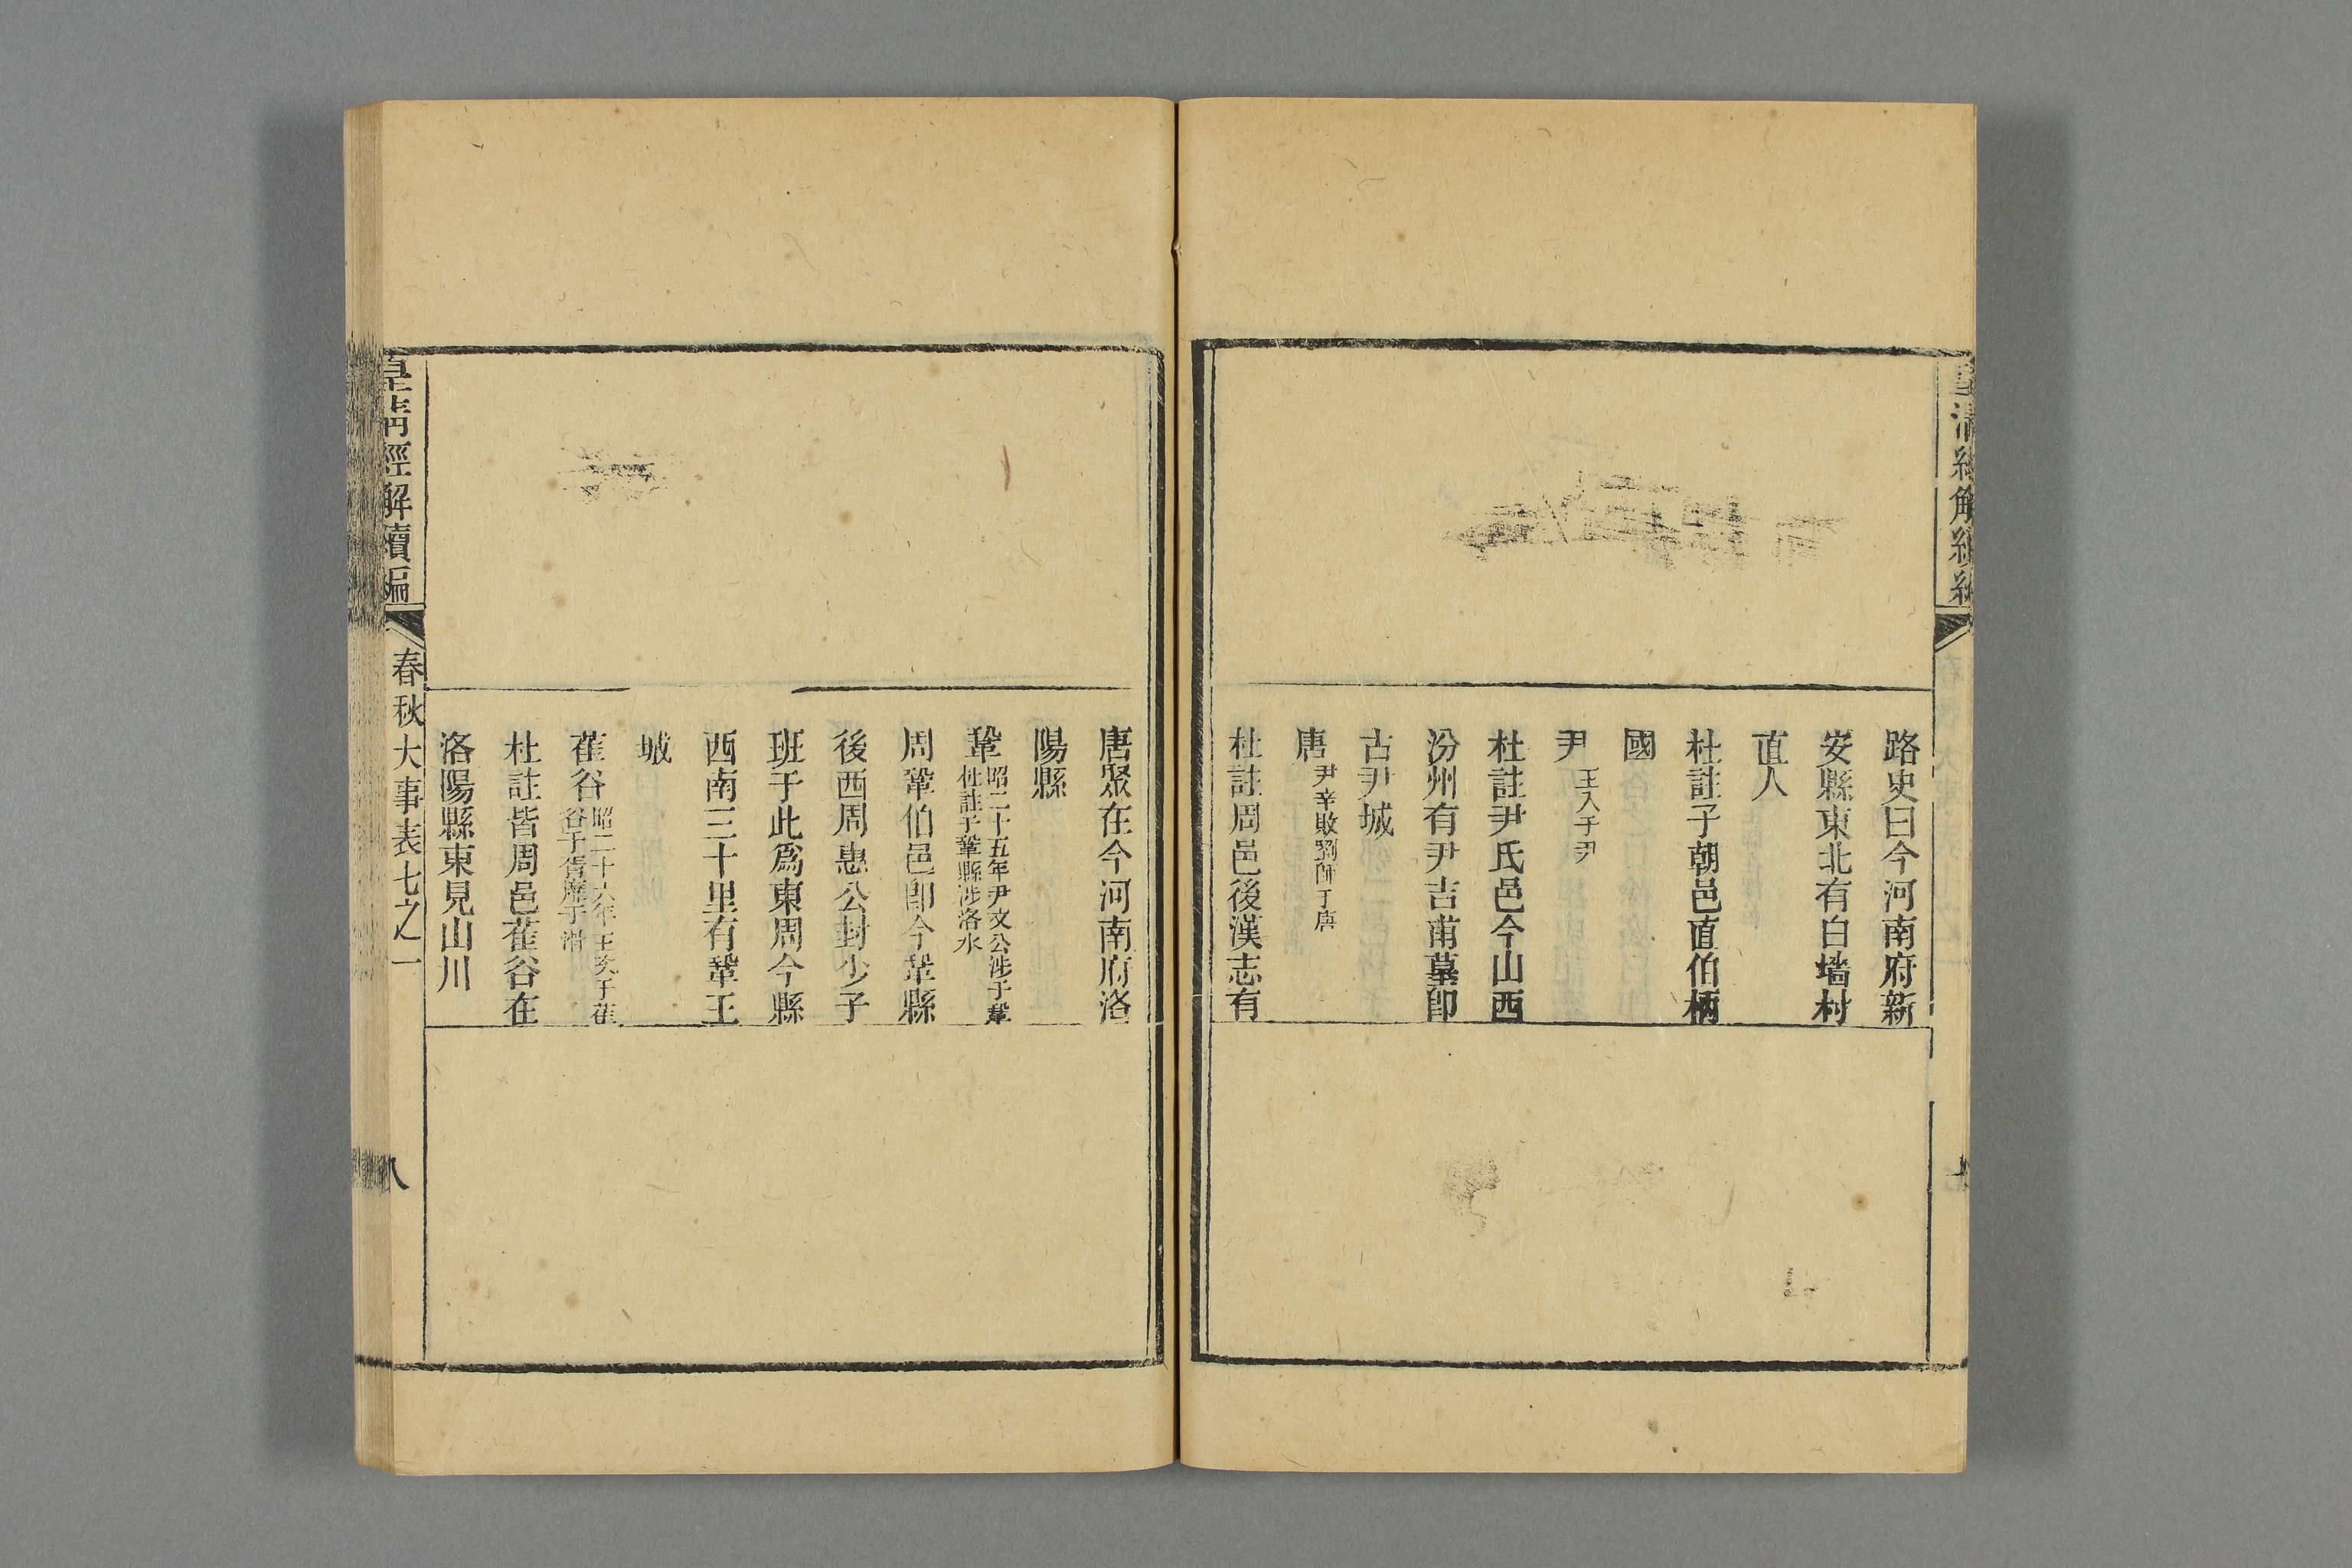 路史曰今河南府新
安縣東北有白墻村
直人
杜註子朝邑直伯柄
國
尹王入于尹
杜註尹氏邑今山西
汾州有尹吉甫墓卽
古尹城
唐尹辛敗劉師于唐
杜註周邑後漢志有
唐聚在今河南府洛
陽縣
鞏昭二十五年尹文公涉于鞏
杜註于鞏縣涉洛水
周鞏伯邑卽今鞏縣
後西周惠公封少子
班于此爲東周今縣
西南三十里有鞏王
城
萑谷昭二十六年王次于萑
谷于胥靡于滑
杜註皆周邑萑谷在
洛陽縣東見山川
皇清經解續編
春秋大事表七之一
八